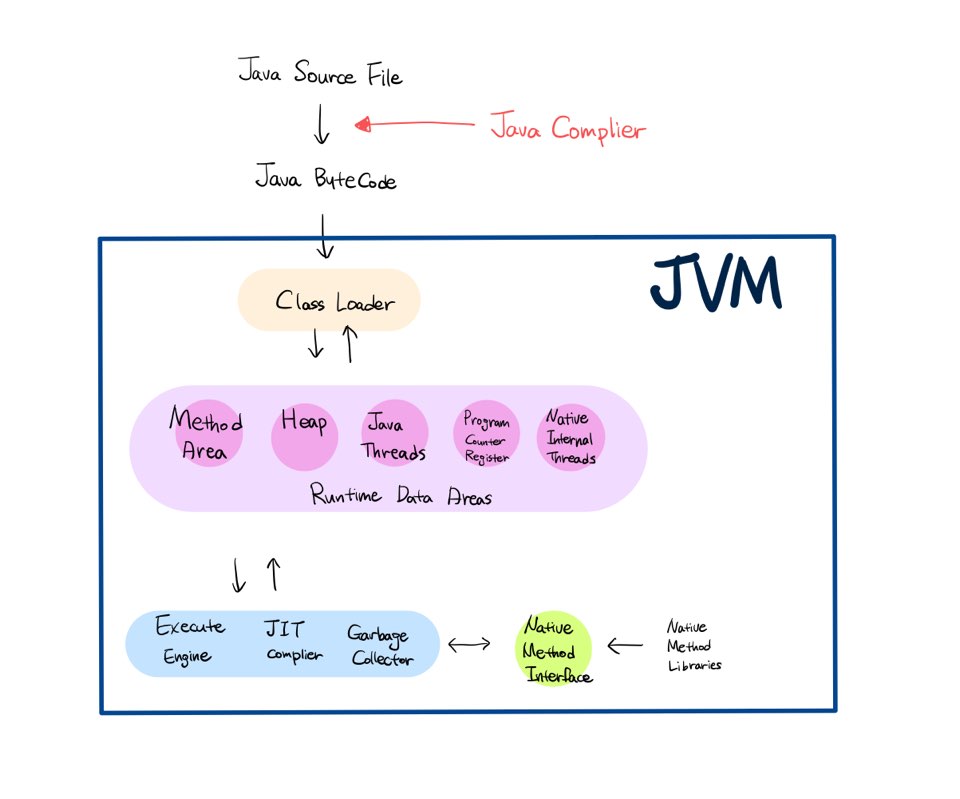 Java Source File
Java Complier
Java ByteCode
JVM
Class Loader
Method
Area
Heap
Java
Threads
Program
Counter
Register
Native
Internal
Threads
Runtime Data Areas
Execute
Engine
JIT
Complier
Garbage
Collector
Native
Method
Interface
Native
Method
Libraries